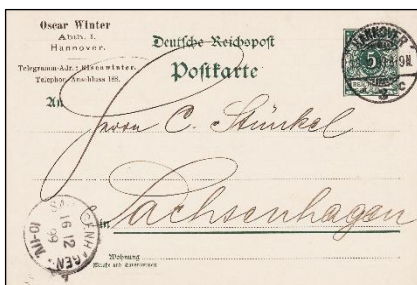 Oscar Winter
Abth. I.
Hannover.
Telegramm-Adr.: Eisenwinter.
Telephon-Anschluss 188.
Deutsche Reichspost
Postkarte
HANNOVER
5
An
Herrn C. Stünkel
in Sachsenhagen
Wohnung
16 12
99